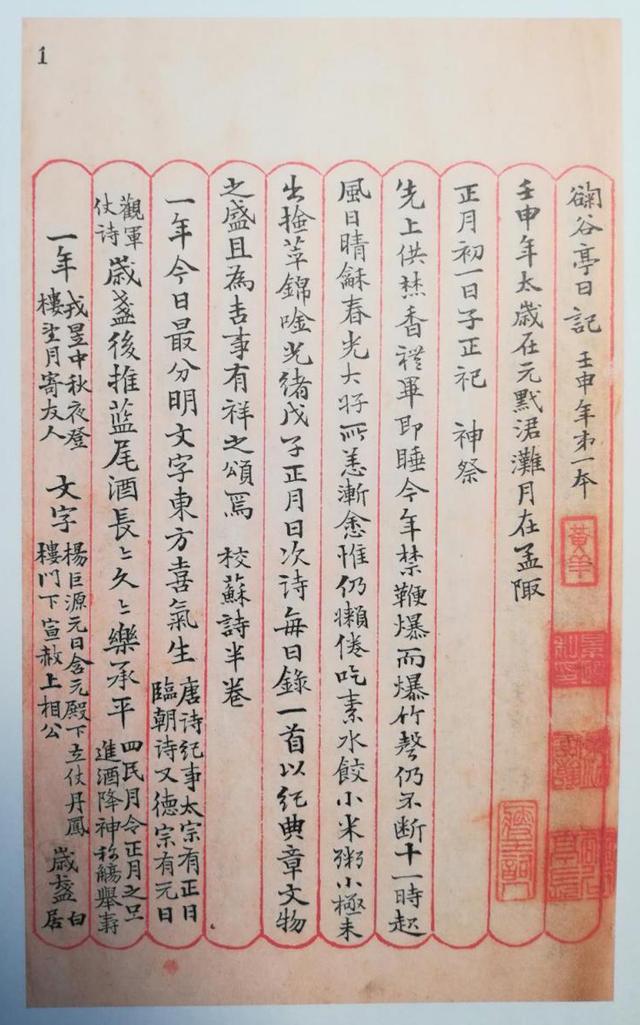 1
鞠谷亭日記 壬申年第一本
黃羊
壬申年太歲在元黓涒灘月在孟陬
正月初一日子正祀 神祭
先上供焚香禮畢即睡今年禁鞭爆而爆竹聲仍不斷十一時起
風日晴龢春光大好所恙漸愈惟仍懶倦吃素水餃小米粥小極未
出撿莘錦唫光緒戊子正月日次詩每日錄一首以紀典章文物
之盛且為吉事有祥之頌焉 校蘇詩半卷
一年今日最分明文字東方喜氣生 唐詩紀事太宗有正日臨朝詩又德宗有元日
觀軍仗詩 歲盞後推藍尾酒長〻久〻樂承平 四民月令正月之旦進酒降神稱觴舉壽
一年 戎昱中秋夜登樓望月寄友人 文字 楊巨源元日含元殿下立仗丹鳳樓門下宣赦上相公 歲盞 白居